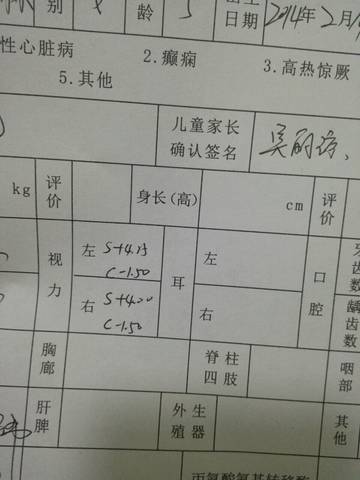 别 龄 5 日期 2014年2月
性心脏病 2.癫痫 3.高热惊厥
5.其他
儿童家长
确认签名
kg 评价 身长(高) cm 评价
视力 左 S+4.75 C-1.50 耳 左 口腔 牙齿数
右 S+4.00 C-1.50 右 龋齿数
胸廓 脊柱四肢 咽部
肝脾 外生殖器
丙氨酸氨基转移酶